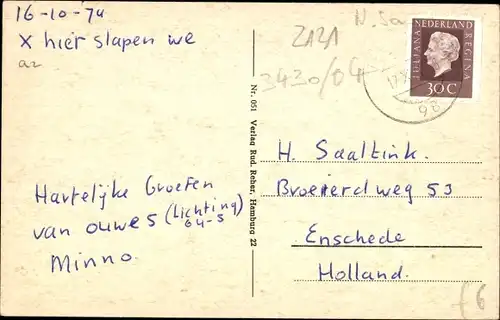 16-10-74
X hier slapen we
Hartelijke Groeten
van ouwe 5 (Lichting
64-5)
Minno.
Nr. 051 Verlag Rud. Reher, Hamburg 22
Z1Z1
3430/04
NEDERLAND
JULIANA REGINA
30 C
H. Saaltink.
Broekerdweg 53
Enschede
Holland.